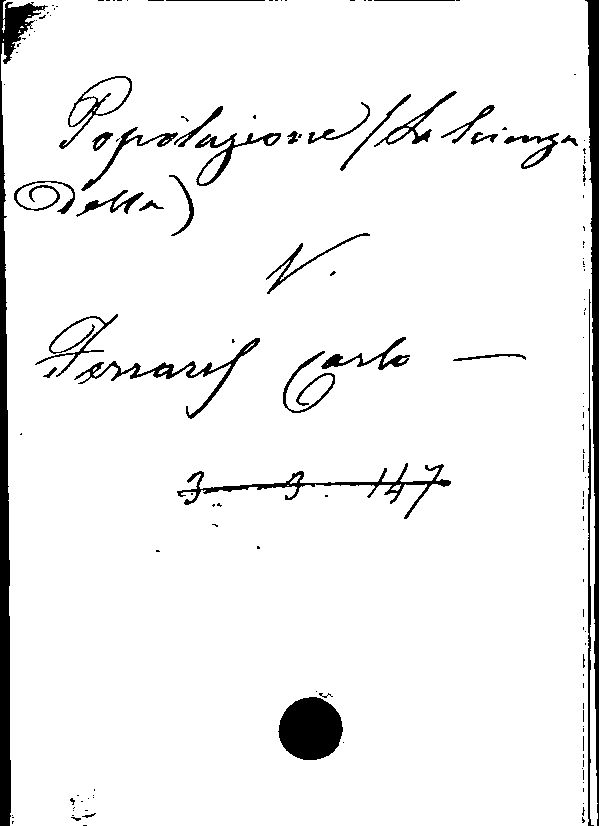 Popolazione (La Scienza
Della)
V.
Ferraris Carlo —
3 3 147